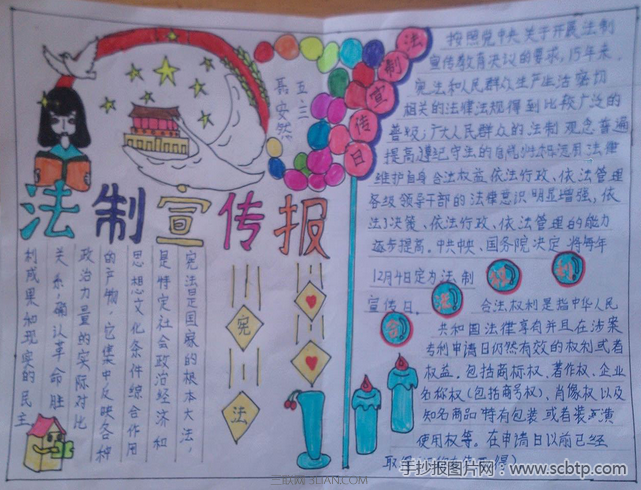 法制宣传报
五三
吴安然
法制宣传日
宪法是国家的根本大法，
是特定社会政治经济和
思想文化条件综合作用
的产物，它集中反映各种
政治力量的实际对比
关系，确认革命胜
利成果和现实的民主
宪
法
按照党中央关于开展法制
宣传教育决议的要求，15年来，
宪法和人民群众生产生活密切
相关的法律法规得到比较广泛的
普及，广大人民群众的法制观念普遍
提高遵纪守法的自
法律
维护自身合法权益，依法行政、依法管理
各级领导干部的法律意识明显增强，依
法决策、依法行政、依法管理的能力
逐步提高。中共中央、国务院决定将每年
12月4日定为法制
宣传日。
合法权利
合法权利是指中华人民
共和国法律享有并且在涉案
专利申请日仍然有效的权利或者
权益。包括商标权、著作权、企业
名称权（包括商号权）、肖像权以及
知名商品特有包装或者装潢
使用权等。在申请日以前已经
取
手抄报图片网：www.scbtp.com
三联网 3LIAN.COM